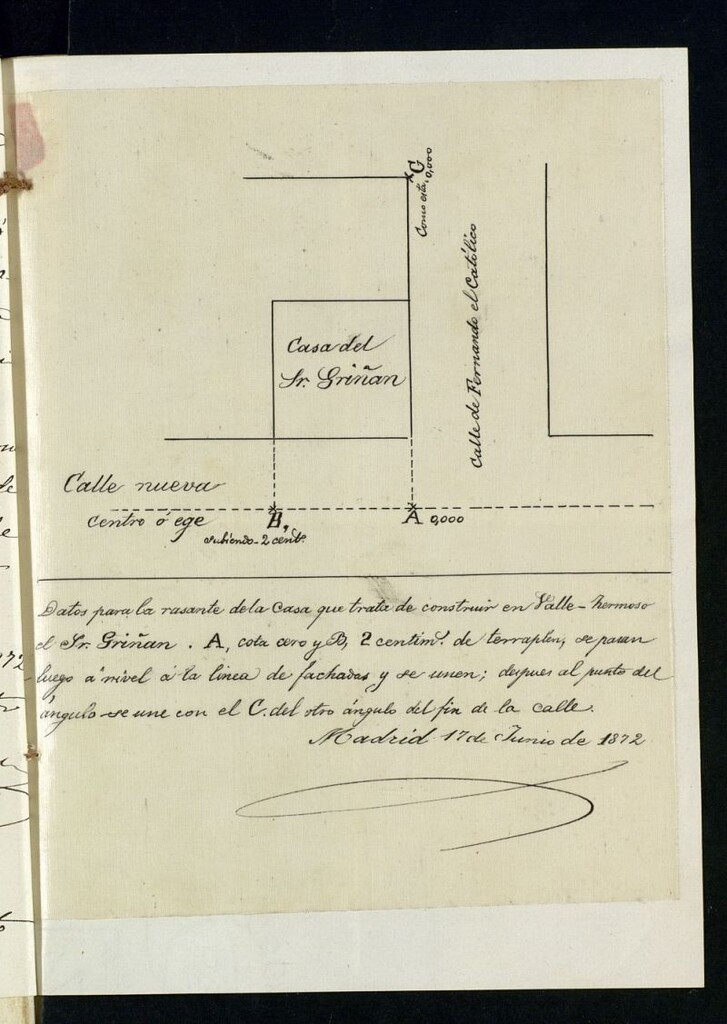 C
Como está 0,000
Calle de Fernando el Católico
Casa del
Sr. Griñan
Calle nueva
centro ó ege
B,
subiendo-2 centº.
A 0,000
Datos para la rasante dela Casa que trata de construir en Valle-hermoso
el Sr. Griñan. A, cota cero y B, 2 centimº. de terraplen, se pasan
luego á nivel á la linea de fachadas y se unen; despues al punto del
ángulo se une con el C. del otro ángulo del fin de la calle.
Madrid 17 de Junio de 1872